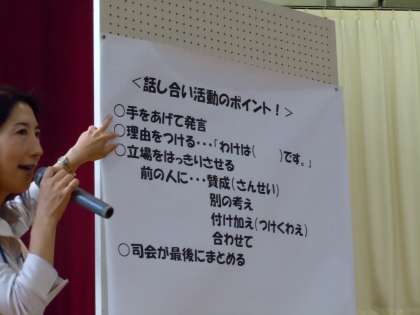 ＜話し合い活動のポイント！＞
○手をあげて発言
○理由をつける・・・「わけは(　　　)です。」
○立場をはっきりさせる
前の人に・・・賛成(さんせい)
別の考え
付け加え(つけくわえ)
合わせて
○司会が最後にまとめる